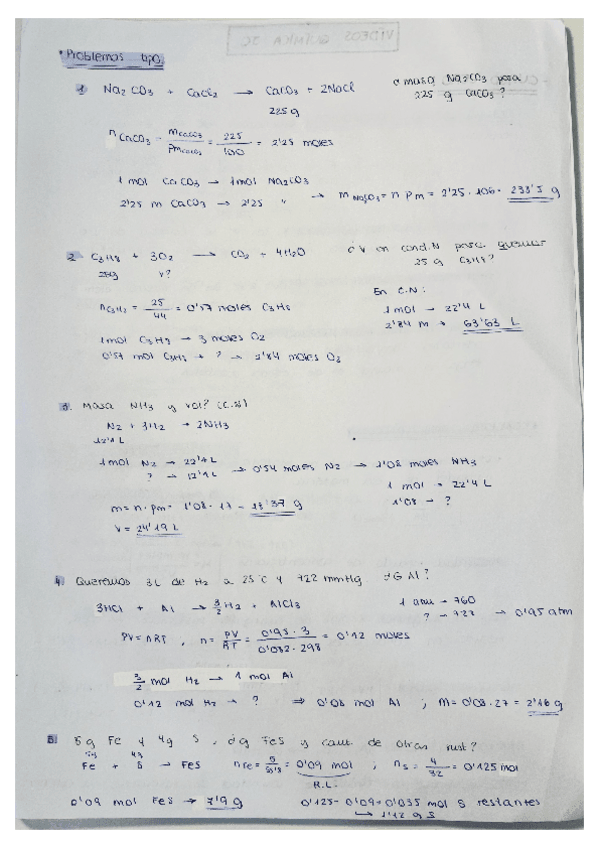 VIDEOS QUÍMICA 2C
* Problemas tipo
1 Na2CO3 + CaCl2 → CaCO3 + 2NaCl
¿masa Na2CO3 para
225 g CaCO3?
225g
nCaCO3 = mCaCO3 / PmCaCO3 = 225 / 100 = 2'25 moles
1 mol CaCO3 → 1mol Na2CO3
2'25 m CaCO3 → 2'25 " → m = n Pm = 2'25 · 106 = 233'5 g
2. C3H8 + 3O2 → CO2 + 4H2O
¿V en cond.N para quemar
25 g C3H8?
25g V?
nC3H8 = 25 / 44 = 0'57 moles C3H8
En C.N:
1 mol → 22'4 L
2'84 m → 63'63 L
1mol C3H8 → 3 moles O2
0'57 mol C3H8 → ? → 2'84 moles O2
3. Masa NH3 y vol? (C.N)
N2 + 3H2 → 2NH3
12'1 L
1mol N2 → 22'4L
? → 12'1L → 0'54 moles N2 → 1'08 moles NH3
1 mol → 22'4 L
1'08 → ?
m = n · pm = 1'08 · 17 = 18'37 g
V = 24'19 L
4. Queremos 3L de H2 a 25°C y 722 mmHg ¿G Al?
3HCl + Al → 3/2 H2 + AlCl3
1 atm → 760
? → 722 → 0'95 atm
PV = nRT, n = PV / RT = 0'95 · 3 / 0'082 · 298 = 0'12 moles
3/2 mol H2 → 1 mol Al
0'12 mol H2 → ? ⇒ 0'08 mol Al ; m = 0'08 · 27 = 2'16 g
5. 5g Fe y 4g S, ¿g FeS y cant. de otras sust?
5g 4g
Fe + S → FeS nFe = 5 / 55'8 = 0'09 mol, nS = 4 / 32 = 0'125 mol
R.L.
0'09 mol FeS → 7'9 g
0'125 - 0'09 = 0'035 mol S restantes
→ 1'12 g S